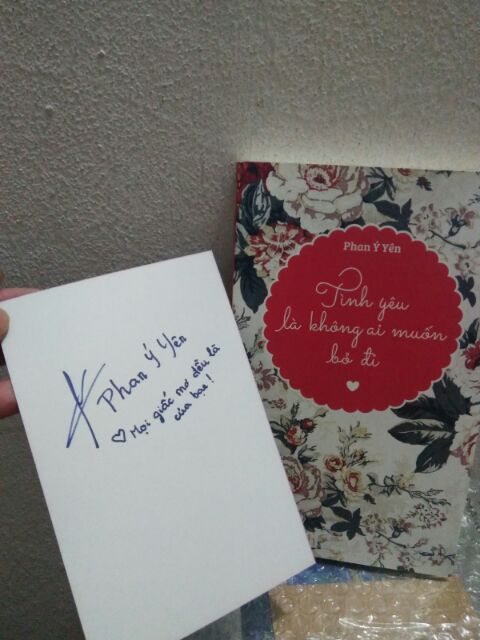 Phan Ý Yên
♡ Mọi giấc mơ đều là
của bạn!
Phan Ý Yên
Tình yêu
là không ai muốn
bỏ đi